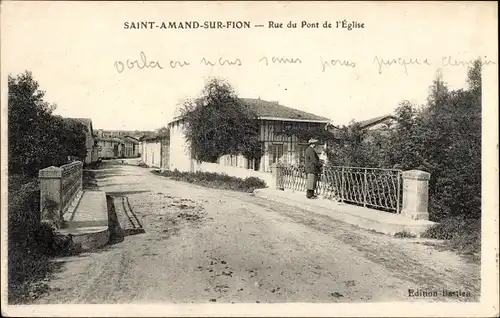 SAINT-AMAND-SUR-FION — Rue du Pont de l'Église
voila ou nous sommes pour jusque demain
Edition Bastien